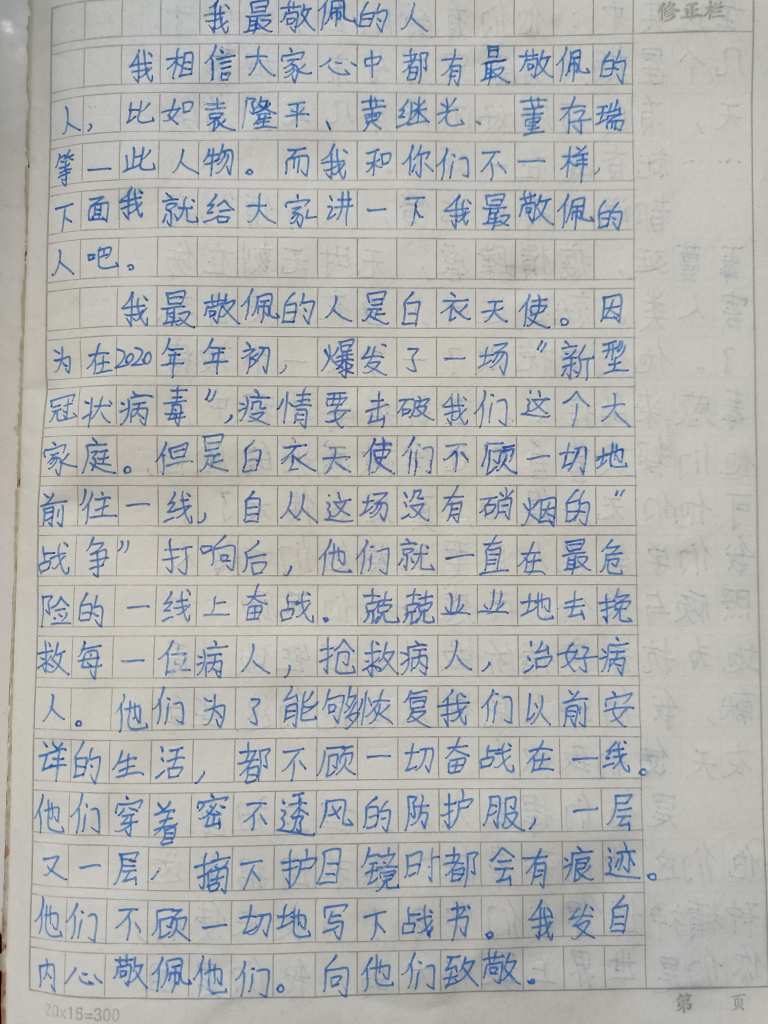 我最敬佩的人
修正栏
我相信大家心中都有最敬佩的
人，比如袁隆平、黄继光、董存瑞
等一此人物。而我和你们不一样，
下面我就给大家讲一下我最敬佩的
人吧。
我最敬佩的人是白衣天使。因
为在2020年年初，爆发了一场“新型
冠状病毒”，疫情要击破我们这个大
家庭。但是白衣天使们不顾一切地
前往一线，自从这场没有硝烟的“
战争”打响后，他们就一直在最危
险的一线上奋战。兢兢业业地去挽
救每一位病人，抢救病人，治好病
人。他们为了能够恢复我们以前安
详的生活，都不顾一切奋战在一线。
他们穿着密不透风的防护服，一层
又一层，摘下护目镜时都会有痕迹。
他们不顾一切地写下战书。我发自
内心敬佩他们。向他们致敬。
20×15=300
第 页